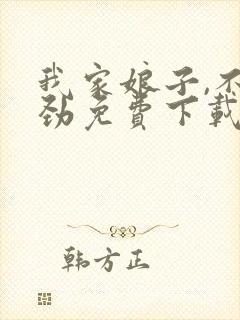 我家娘子,不
劲免费下载
韩方正